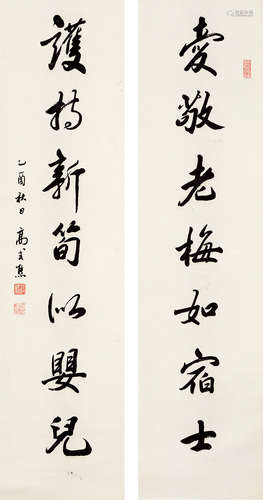 愛敬老梅如宿士
護持新筍似嬰兒
乙酉秋日 高式熊